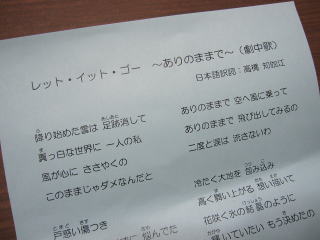 レット・イット・ゴー　～ありのままで～（劇中歌）
日本語訳詞：高橋 知伽江
降り始めた雪は 足跡消して
真っ白な世界に 一人の私
風が心に ささやくの
このままじゃダメなんだと
戸惑い傷つき
に 悩んでた
ありのままで 空へ風に乗って
ありのままで 飛び出してみるの
二度と涙は 流さないわ
冷たく大地を 包み込み
高く舞い上がる 想い描いて
花咲く氷の結晶のように
いていたい もう決めたの